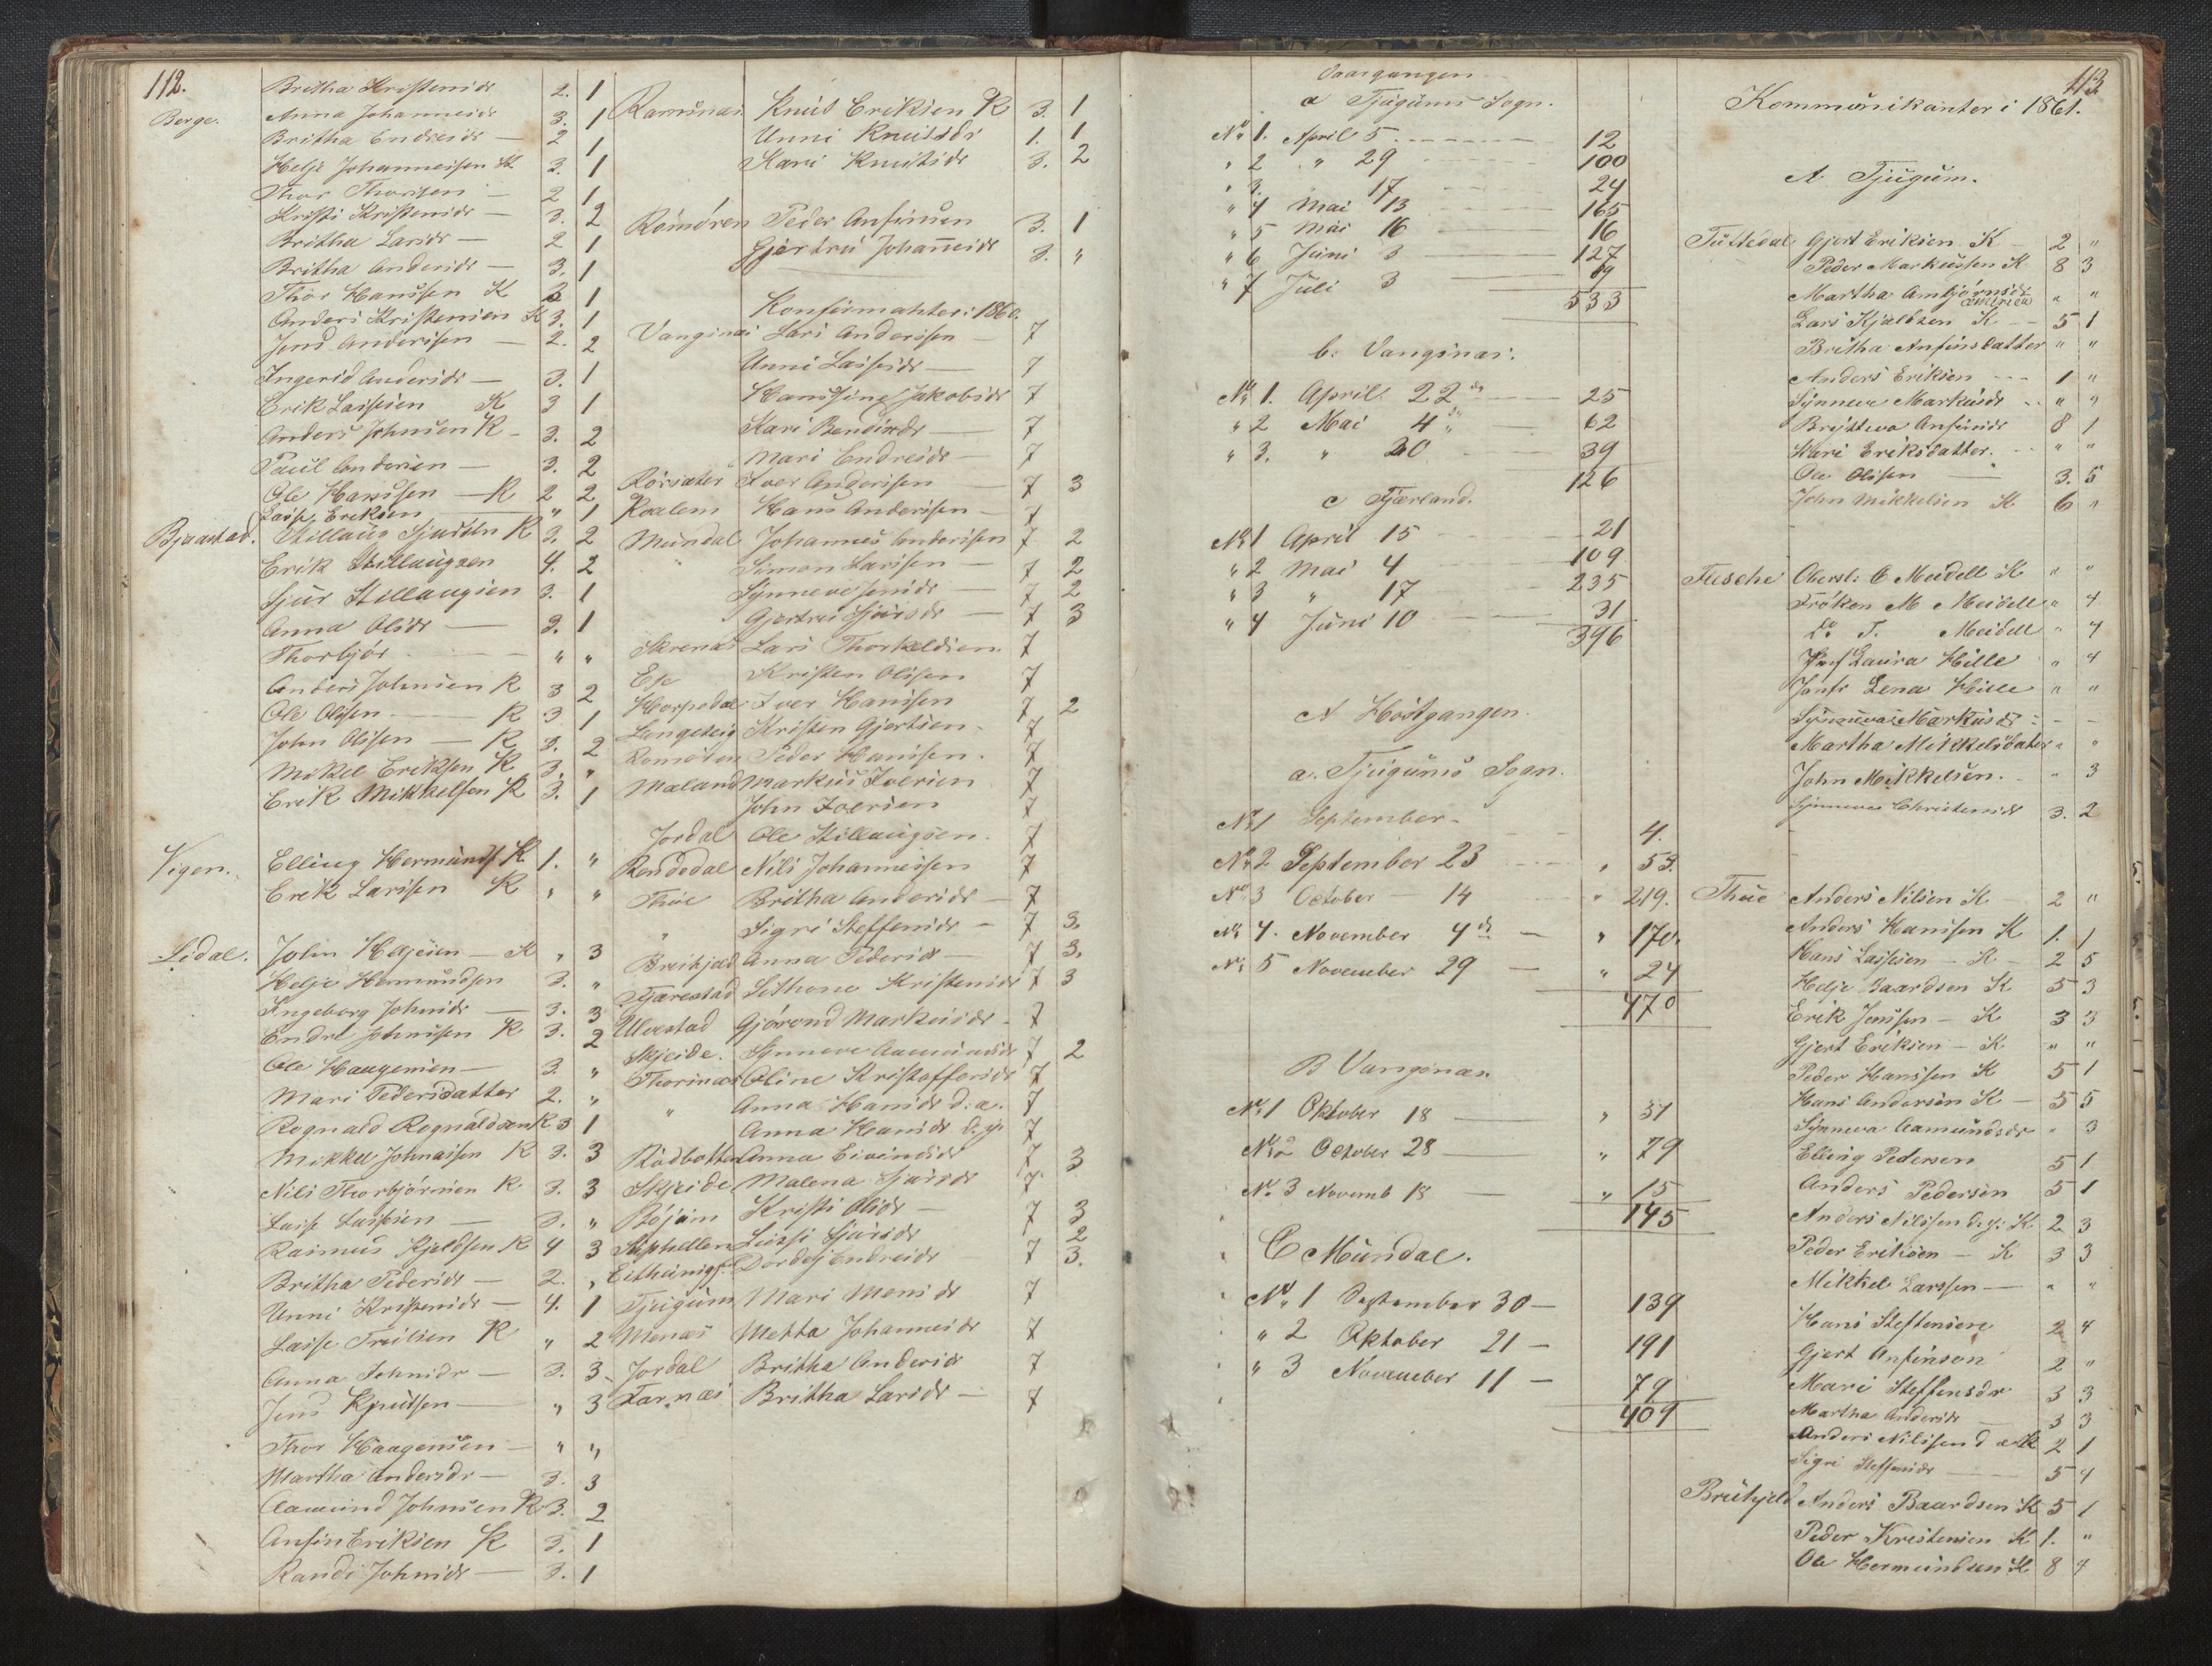 112.
Britha Kristensdr 2. 1
Berge. Anna Johannesdr 3. 1
Britha Endresdr — 2 1
Helje Johannessen K 3. 1
Thor Thorssen — 2 1
Kristi Kristensdr — 3. 2
Britha Larsdr — 2 1
Britha Andersdr — 3. 1
Thor Hanssen K 1
Anders Kristensen K 3. 1
Jens Anderssen — 2. 2
Ingerid Andersdr — 3. 1
Erik Lassesen K 3 1
Anders Johnsen K — 3. 2
Paul Andersen — 3. 2
Ole Hanssen — K 2 2
Lasse Eriksen — " 1
Bjaastad. Stillaug Sjursen K 3. 2
Erik Stillaugsen 4. 2
Sjur Stillaugsen 3. 1
Anna Olsdr — 3. 1
Thorbjør — " "
Anders Johnsen K 3 2
Ole Olssen — K 3 1
John Olssen — K 3. 2
Mikel Eriksen K 3. "
Erik Mikkelsen K 3. 1
Vigen. Elling Hermunds K 1. "
Erik Larssen K " "
Lidal. John Heljesen — K " 3
Helje Hermundsen 3. "
Ingeborg Johnsdr — 3. 3
Endre Johnssen K 3. 2
Ole Haagensen — 3 "
Mari Pedersdatter 2. "
Rognald Rognaldsen K 3 1
Mikkel Johnssen K 3. 3
Nils Thorbjørnsen K 3. 3
Lasse Lassesen — 3. "
Rasmus Kjeldsen K 4 3
Britha Pedersdr — 2. "
Unni Kristensdr — 4. 1
Lasse Truilsen K " 2
Anna Johnsdr — 3. 3
Jens Knutsen — " 3
Thor Haagensen — " "
Martha Andersdr — 3. 3
Aamund Johnsen K 3. 2
Anfin Eriksen K 3. 1
Randi Johnsdr — 3. 1
Ramsnæs Knut Eriksen K 3. 1
Unni Knutsdr 1. 1
Kari Knutsdr 3. 2
Romøren Peder Anfinsen 3. 1
Gjertru Johannesdr 3. "
Konfirmanter i 1860.
Vangsnæs Lars Anderssen — 7
Unni Lassesdr — 7
Hansine Jakobsdr 7
Kari Bendixdr — 7
" Mari Endresdr — 7
Rørsæter Iver Anderssen — 7 3
Hans Anderssen — 7
Mundal Johannes Anderssen 7 2
" Simon Larssen — 7 2
Synneve Jensdr — 7 2
Gjertru Sjursdr — 7 3
Skrenæs Lars Thorkeldsen 7
Ese Kristen Olssen 7
Horpedal Iver Hanssen 7 2
Lengeteig Kristen Gjertsen — 7
Romøren Peder Hanssen. 7
Mæland Markus Iversen 7
John Iversen 7
Jordal Ole Stillaugsen. 7
Rendedal Nils Johannessen 7
Thue Britha Andersdr — 7
" Sigri Steffensdr — 7 3.
Anna Pedersdr — 7 3.
Tjærestad Kristensdr 7 3
Ulvestad Gjørond Markusdr — 7
Skjeide. Synneve Aamundsdr 7 2
Thorsnæs Oline Kristoffersdr 7
" Anna Hansdr d: æ. 7
Anna Hansdr d: y. 7
Rødbotten Anna Eivindsdr 7 3
Skjeide Malena Sjursdr 7
Bøjum Kristi Olsdr — 7 3
Lussi Sjursdr 2
Dordej Endresdr 7 3.
Tjugum Mari Monsdr 7
Menæs Metta Johannesdr 7
Jordal Britha Andersdr 7
Farnæs Britha Larsdr — 7
Vaargangen
a Tjugums Sogn.
No 1. April 5 — 12
" 2 " 29 — 100
" 3. " 17 — 24
" 4 Mai 13 — 165
" 5 Mai 16 — 16
" 6 Juni 3 — 127
" 7 Juli 3 — 89
533
b: Vangsnæs.
No 1. April 22de — 25
" 2 Mai 4de — 62
" 3. " 20 — 39
126
c Fjærland.
No 1 April 15 — 21
" 2 Mai 4 — 109
" 3 " 17 — 235
" 4 Juni 10 — 31
396
A Høstgangen.
a. Tjugums Sogn.
No 1 September — 4.
No 2 September 23 " 53.
No 3 October — 14 " 219.
No 4. November 4de — " 170.
No 5 November 29 — " 24
470
B Vangsnæs
No 1 Oktober 18 — " 51
No 2 October 28 — " 79
No 3 Novemb 18 — " 15
145
C Mundal.
No 1 September 30 — 139
" 2 Oktober 21 — 191
" 3 November 11 — 79
409
113.
Kommunikanter i 1861.
A. Tjugum.
Tuttedal Gjert Eriksen K — 2 "
Peder Markussen K 8 3
Martha Ambjørnsdr " "
Lars Kjeldsen K — 5 1
Britha Anfinsdatter " "
Anders Eriksen — 1 "
Synneve Markusdr " "
Brytteva Anfinsdr 8 1
Kari Eriksdatter. " "
Ole Olssen — 3. 5
John Mikkelsen K 6 "
Flesche Oberstl: C Meidell K " "
Frøken M Meidell " 4
Do T. Meidell " 4
Jomf Laura Hille " 4
Jomfr Lena Hille " "
Synneva Markusdr — —
Martha Mikkelsdater " "
John Mikkelsen. " 3
Synneva Christensdr 3. 2
Thue Anders Nilsen K — 2 "
Anders Hanssen K 1. 1
Hans Lassesen — K — 2 5
Helje Baardsen K 5 3
Erik Jenssen — K 3 3
Gjert Eriksen — K " "
Peder Hanssen K 5 1
Hans Andersen K — 5 5
Synneva Aamundsdr " 3
Elling Pedersen 5 1
Anders Pedersen 5 1
Anders Nilssen d. y. K 2 3
Peder Eriksen — K 3 3
Mikkel Larssen — " "
Hans Steffensen 2 4
Gjert Anfinson 2 "
Mari Steffensdr 3 3
Martha Andersdr — 3 3
Anders Nilssen d æ K 2 1
Sigri Steffensdr — 5 4
Anders Baardsen K 5 1
Peder Kristensen K 1. "
Ole Hermundsen K 8 4